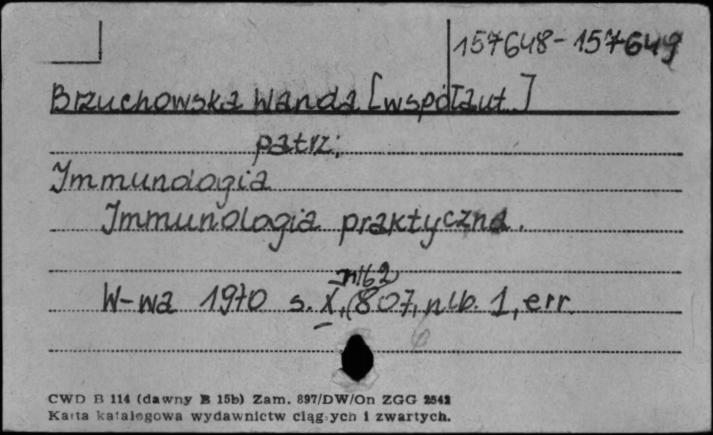 157648-157649
Brzuchowska Wanda [współaut.]
patrz:
Immunologia
Immunologia praktyczna.
nlb 2
W-wa 1970 s. X, 807, nlb. 1, err.
CWD B 114 (dawny B 15b) Zam. 897/DW/On ZGG 2542
Karta katalogowa wydawnictw ciągłych i zwartych.